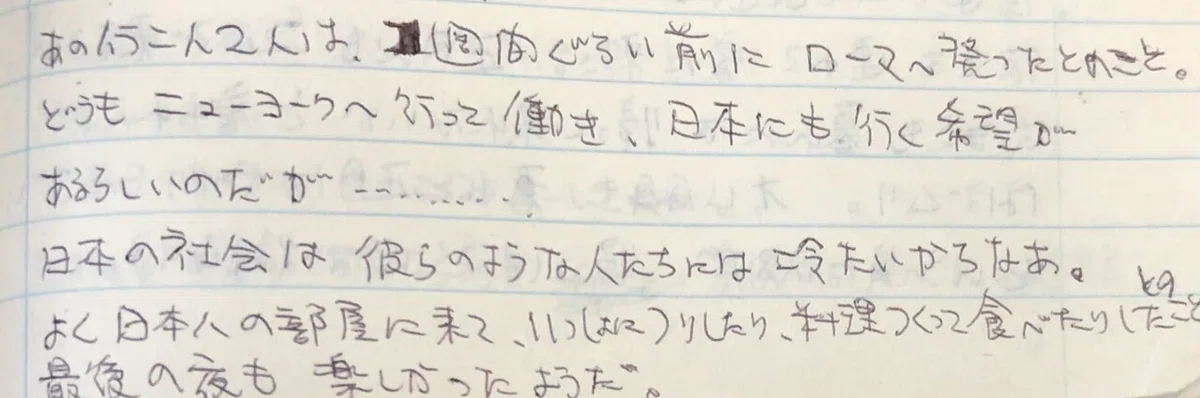 あの行こ人2人は、1週間ぐらい前にローマへ発ったとのこと。
どうもニューヨークへ行って働き、日本にも行く希望が
あるらしいのだが…………
日本の社会は彼らのような人たちには冷たいからなあ。
よく日本人の部屋に来て、いっしょに りしたり、料理つくって食べたりしたとのこと
最後の夜も楽しかったようだ。